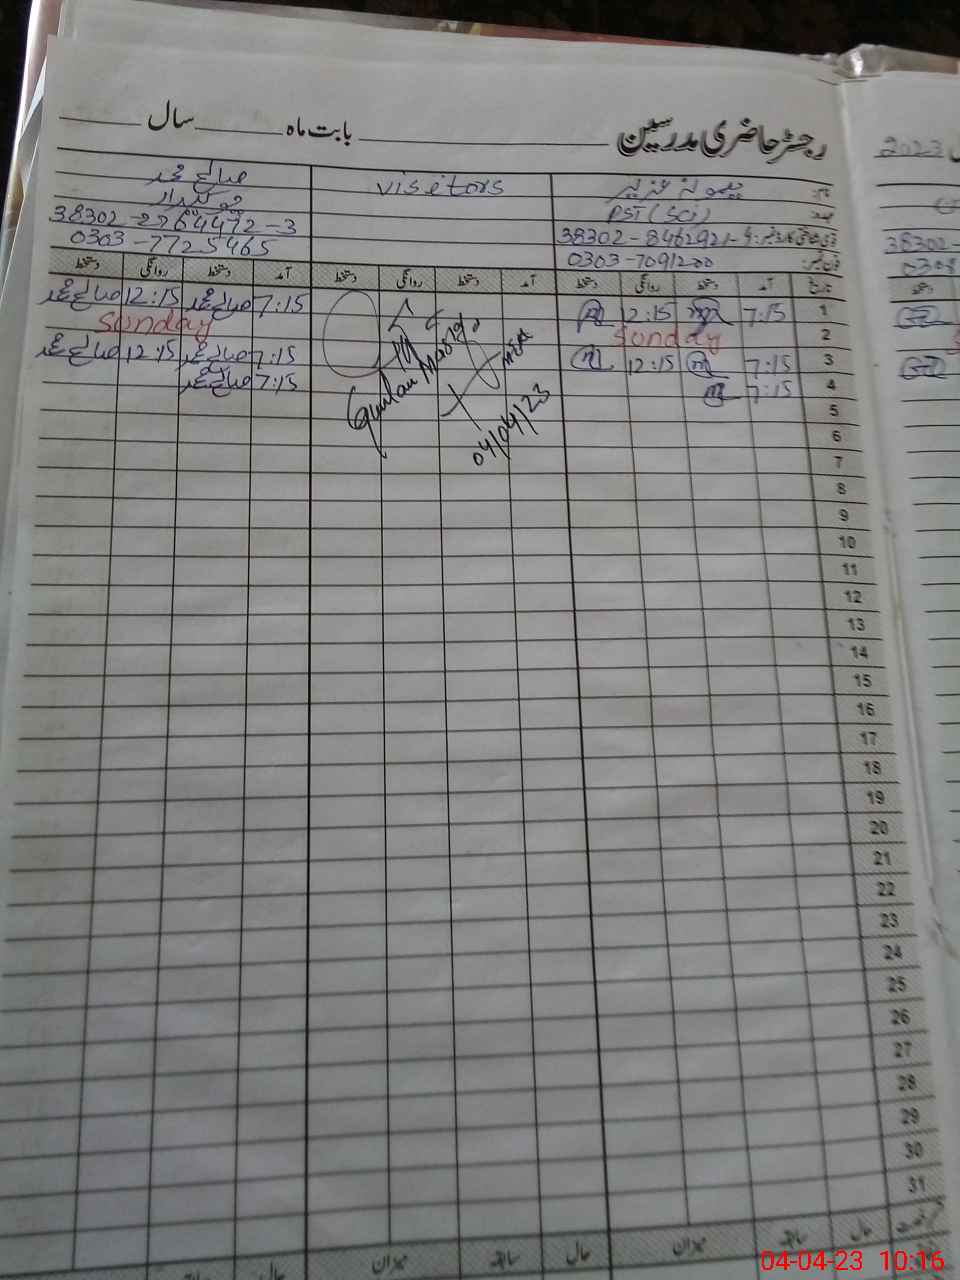 رجسٹر حاضری مدرسین ــــ بابت ماہ ــــ سال ــــ
2023
visitors
صالح محمد
PST (Sci)
چوکیدار
38302-8462921-9
38302-2764472-3
38302-
0303-7091200
0303-7725465
0308
تاریخ آمد دستخط روانگی دستخط آمد دستخط روانگی دستخط آمد دستخط روانگی دستخط
1 7:15 12:15 7:15 صالح محمد 12:15 صالح محمد
2 Sonday Sonday
3 7:15 12:15 7:15 صالح محمد 12:15 صالح محمد
4 7:15 7:15 صالح محمد
04/04/23
5
6
7
8
9
10
11
12
13
14
15
16
17
18
19
20
21
22
23
24
25
26
27
28
29
30
31
حال سابقہ میزان حال سابقہ میزان حال سابقہ
04-04-23 10:16